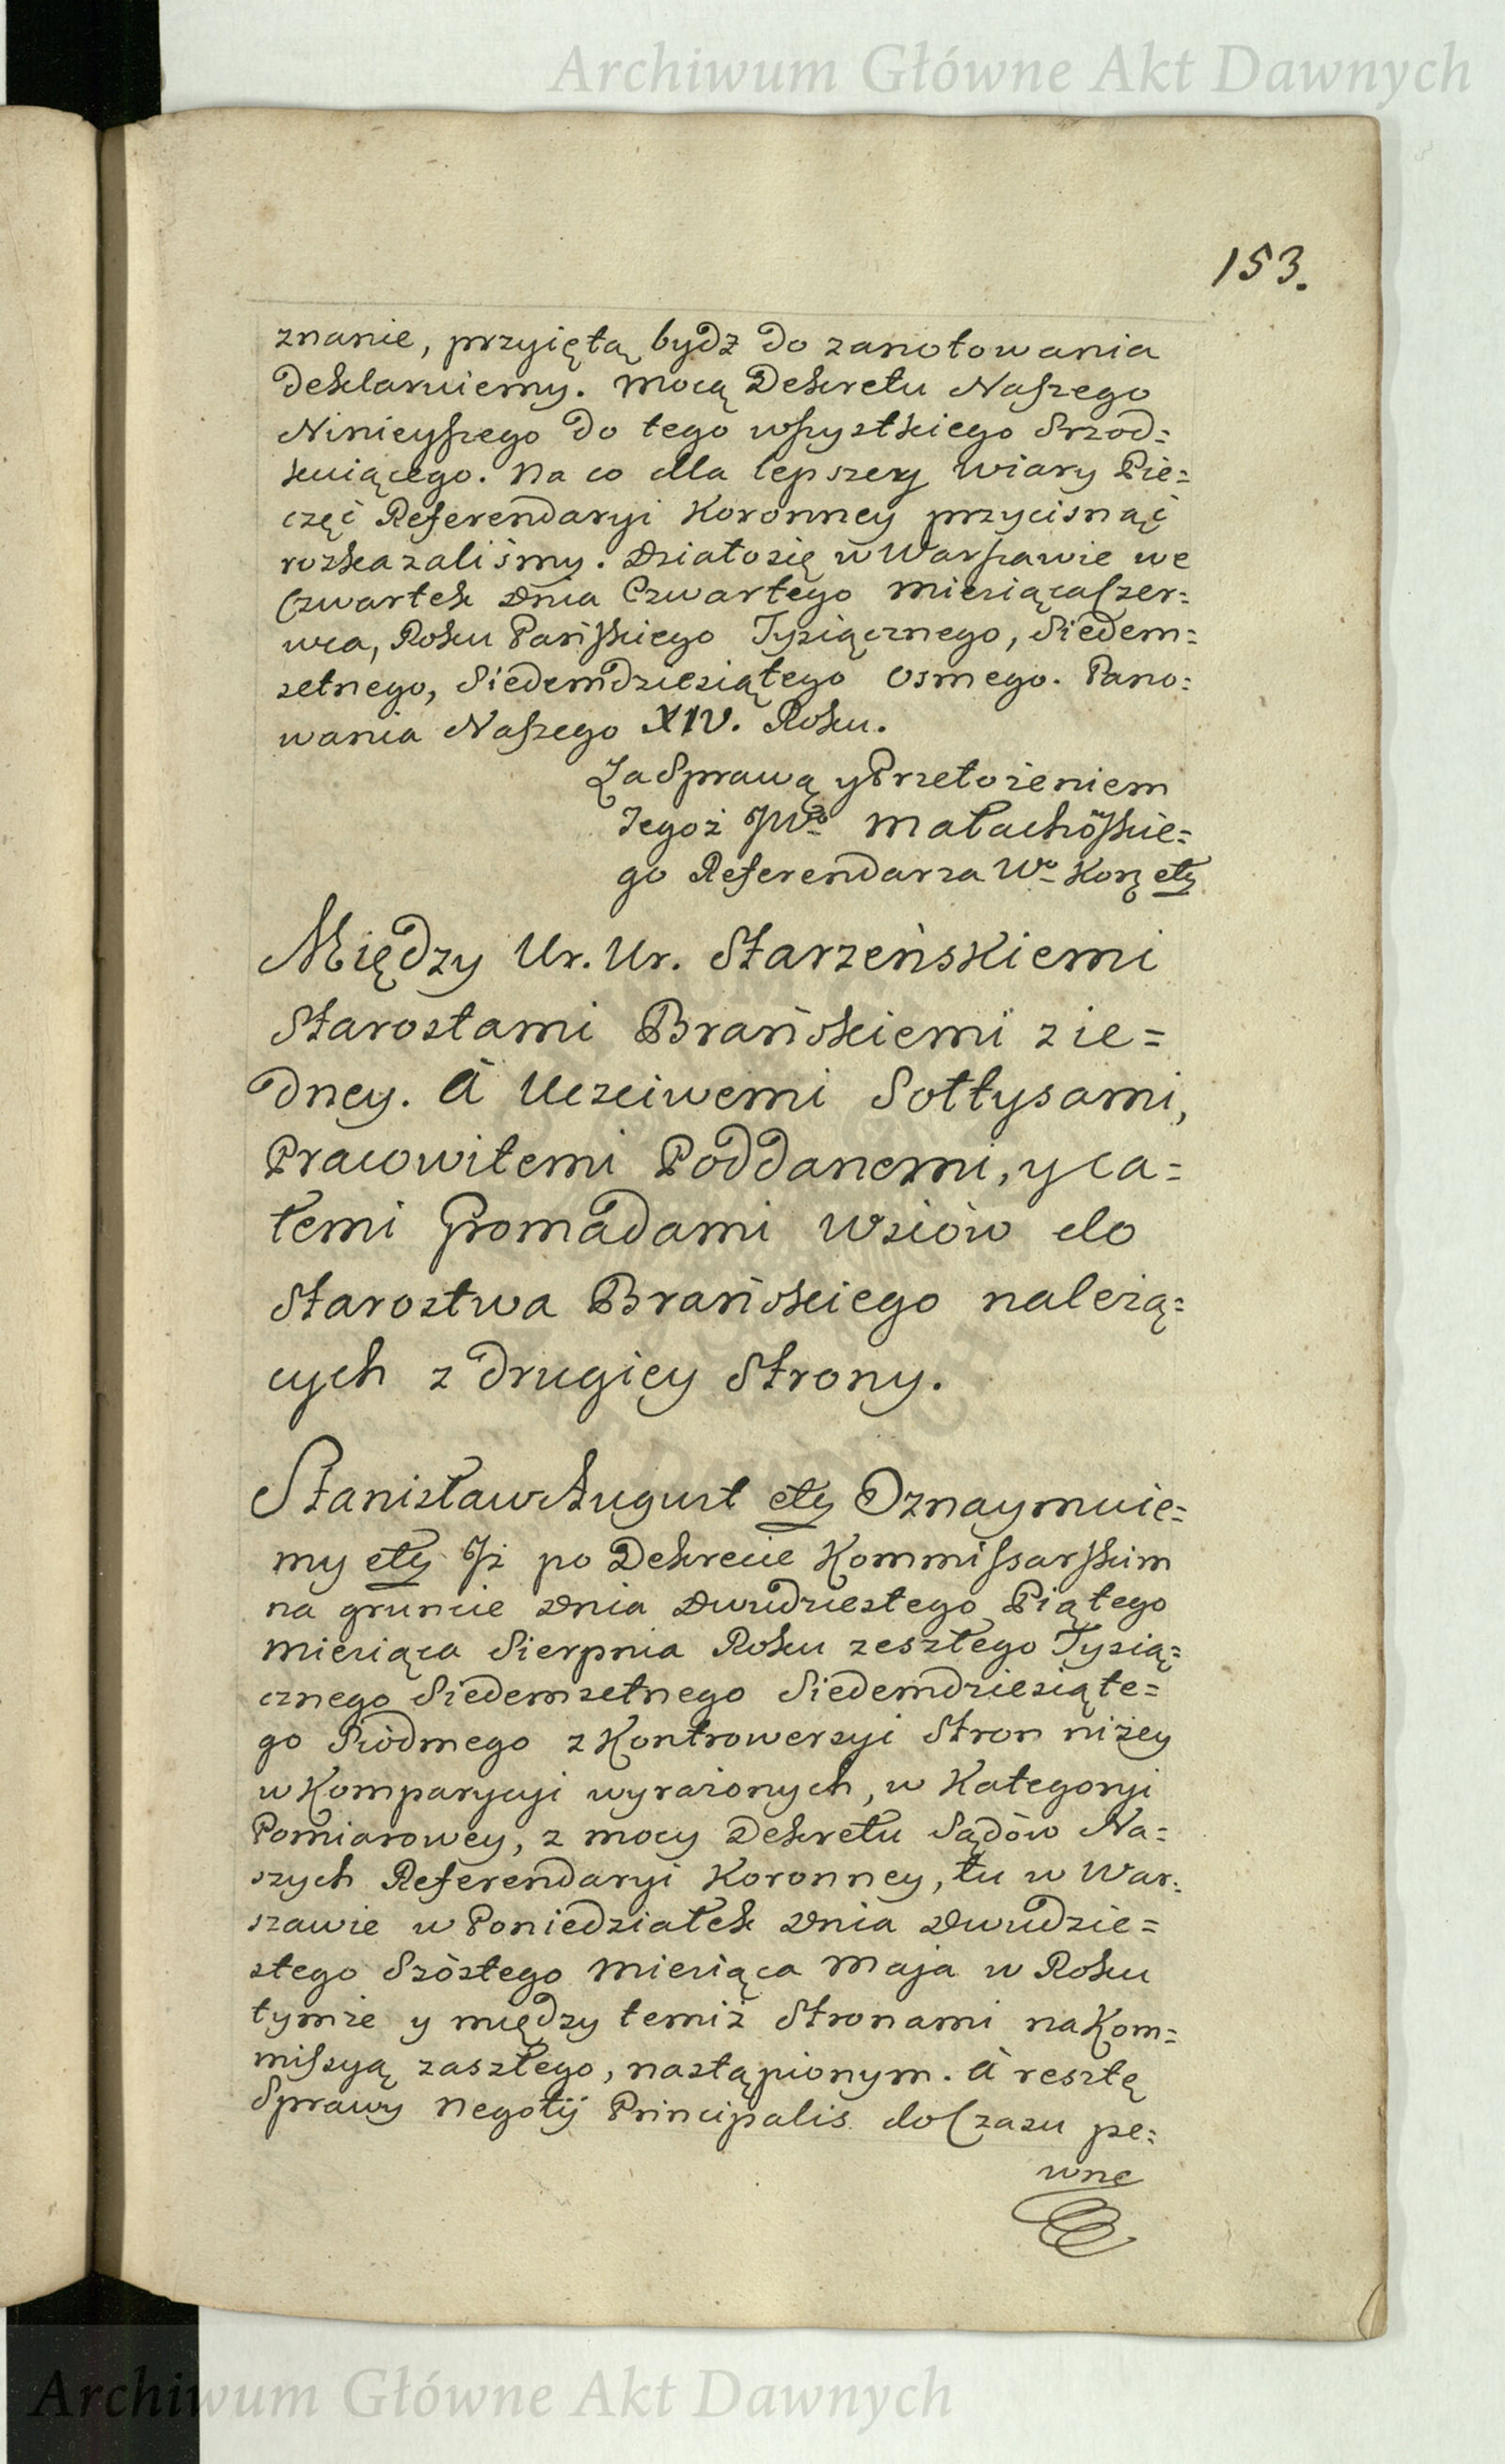 Archiwum Główne Akt Dawnych
153.
znanie, przyiętą bydź do zanotowania
deklaruiemy. Mocą Dekretu Naszego
Ninieyszego do tego wszystkiego Srzod=
kuiącego. Na co dla lepszey wiary Pie=
częć Referendaryi Koronney przycisnąć
rozkazaliśmy. Działo się w Warszawie we
Czwartek Dnia Czwartego Miesiąca Czer=
wca, Roku Pańskiego Tysiącznego, Siedem=
setnego, Siedemdziesiątego Osmego. Pano=
wania Naszego XIV. Roku.
Za Sprawą y Przełożeniem
Tegoż JWo Małachowskie=
go Referendarza Wo Kor. etc
Między Ur. Ur. Starzeńskiemi
Starostami Brańskiemi z ie=
dney. A Uczciwemi Sołtysami,
Pracowitemi Poddanemi, y ca=
łemi Gromadami Wsiów do
Starostwa Brańskiego należą=
cych z drugiey Strony.
Stanisław August etc Oznaymuie=
my etc Jż po Dekrecie Kommissarskim
na gruncie Dnia Dwudziestego Piątego
Miesiąca Sierpnia Roku zeszłego Tysią=
cznego Siedemsetnego Siedemdziesiąte=
go Siódmego z Kontrowersyi Stron niżey
w Komparycyi wyrażonych, w Kategoryi
Pomiarowey, z mocy Dekretu Sądów Na=
szych Referendaryi Koronney, tu w War=
szawie w Poniedziałek Dnia Dwudzie=
stego Szóstego Miesiąca Maja w Roku
tymże y między temiż Stronami na Kom=
missyą zaszłego, nastąpionym. A resztę
Sprawy Negotij Principalis do Czasu pe=
wne
Archiwum Główne Akt Dawnych